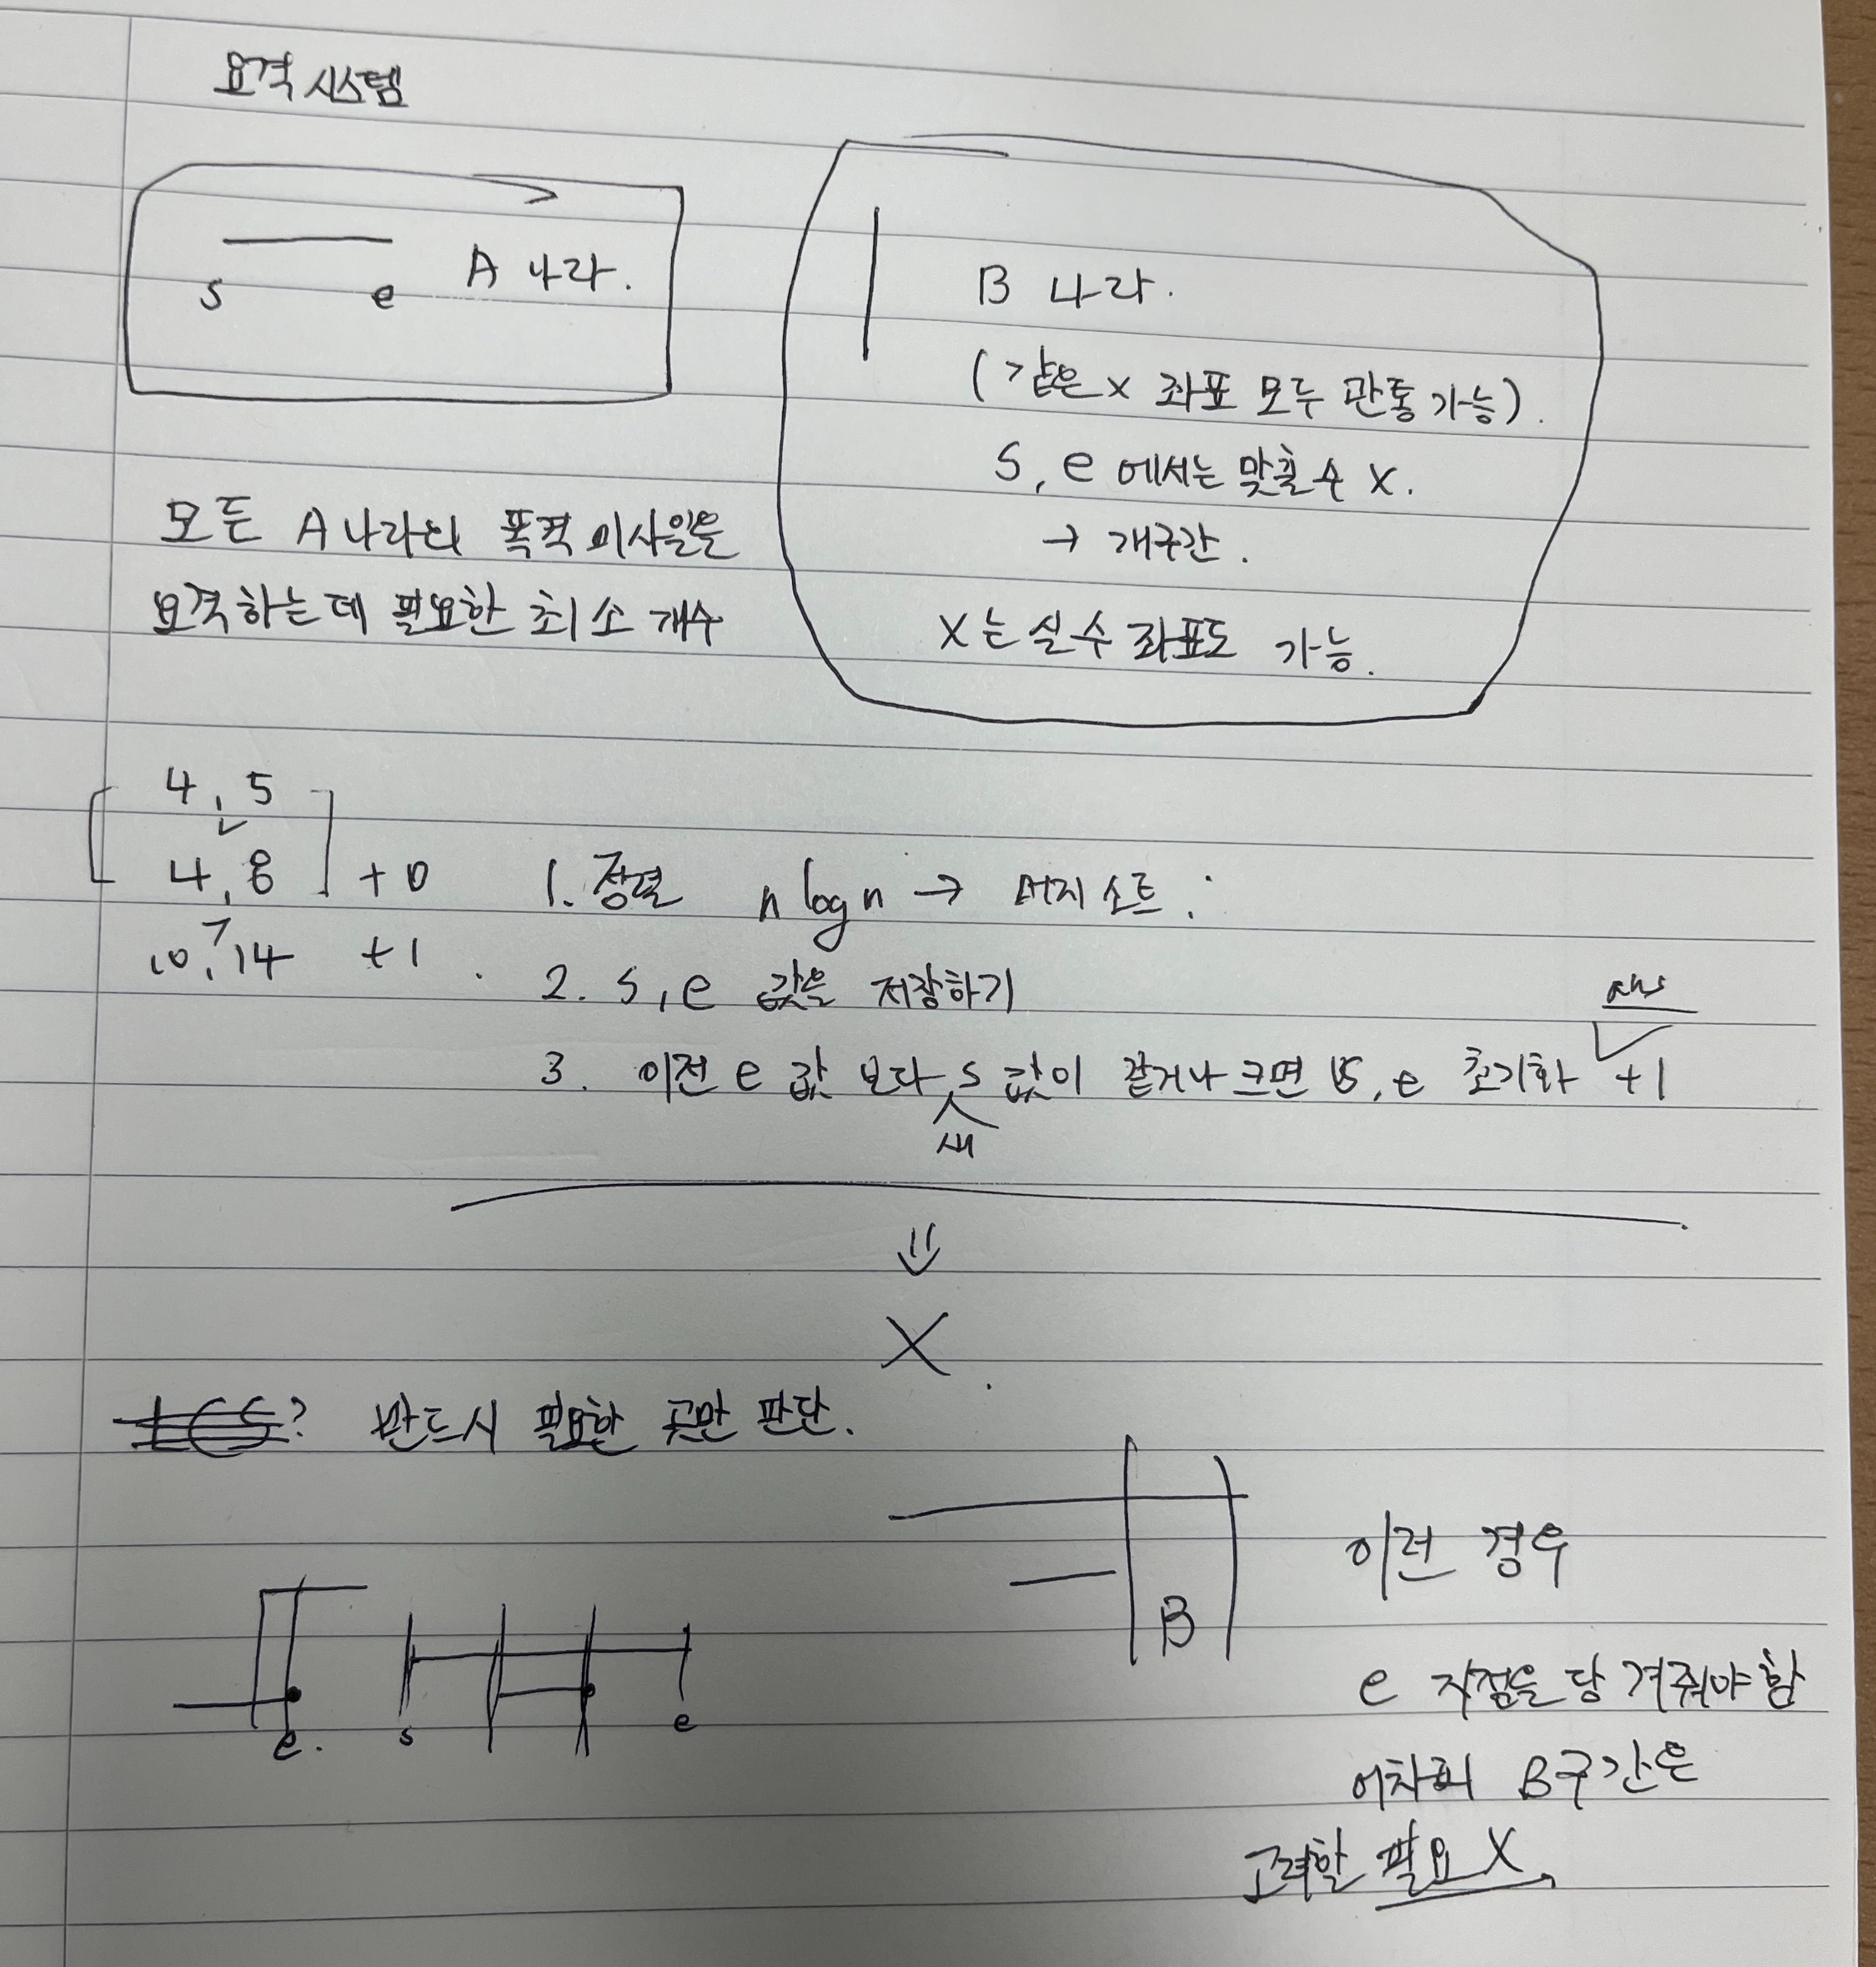 요격 시스템
s e A 나라.
B 나라.
(같은 x 좌표 모두 관통 가능).
s, e 에서는 맞출 수 X.
→ 개구간.
x는 실수 좌표도 가능.
모든 A나라의 폭격 미사일을
요격하는데 필요한 최소 개수
4, 5
4, 8 +0
10, 14 +1.
1. 정렬 n log n → 머지 소트:
2. s, e 값을 저장하기
3. 이전 e 값 보다 새 s 값이 같거나 크면 s, e 초기화 ans +1
⇓
X
? 반드시 필요한 곳만 판단.
B
이런 경우
e 지점을 당겨줘야 함
어차피 B구간은
고려할 필요 X
e. s e